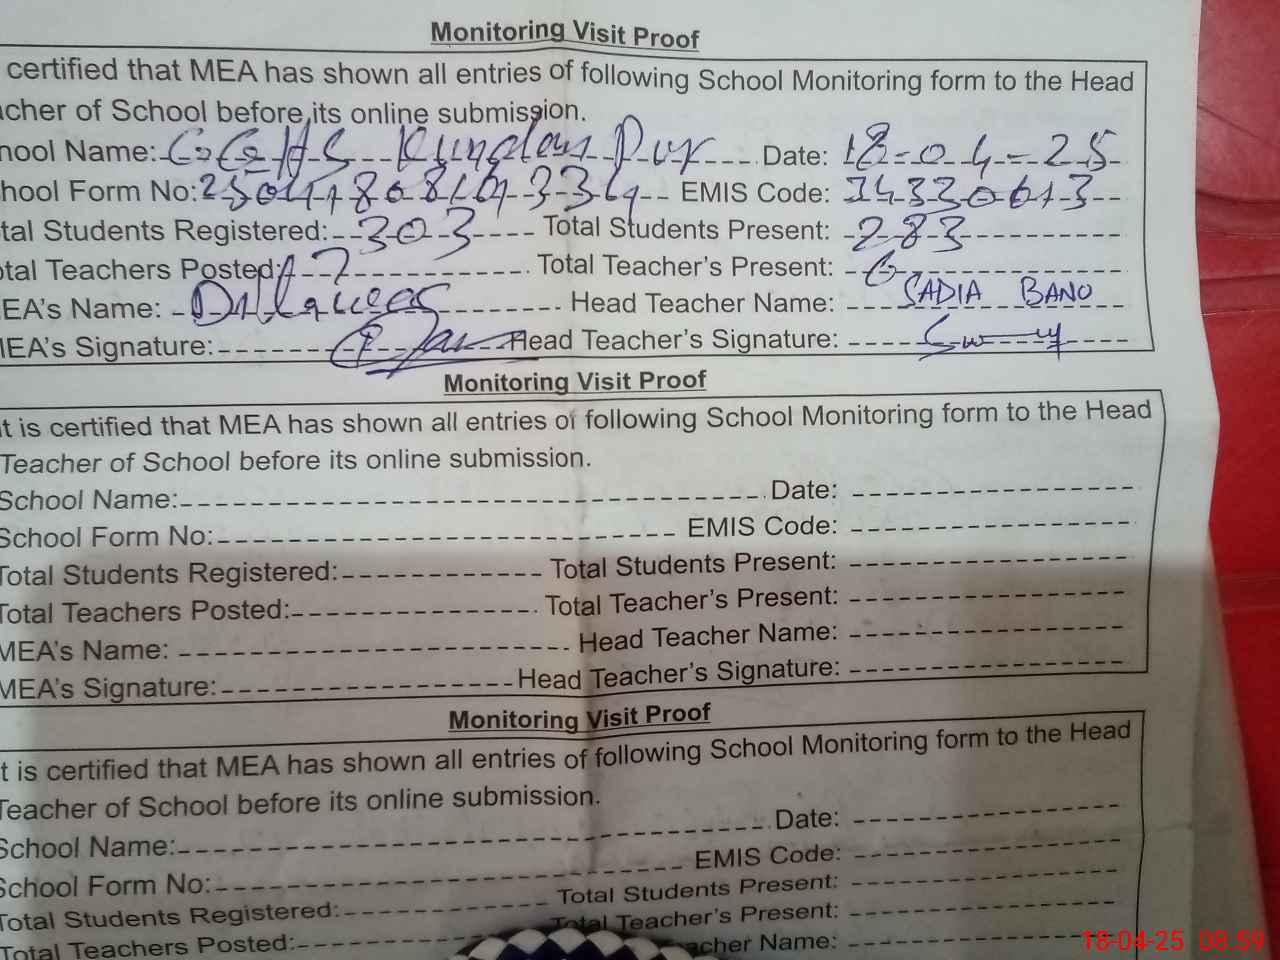 Monitoring Visit Proof
certified that MEA has shown all entries of following School Monitoring form to the Head
acher of School before its online submission.
hool Name: G.G.H.S Kundan Pur Date: 18-04-25
hool Form No: EMIS Code:
tal Students Registered: 303 Total Students Present: 283
otal Teachers Posted: 7 Total Teacher's Present: 6
EA's Name: Head Teacher Name: SADIA BANO
MEA's Signature: Head Teacher's Signature:
Monitoring Visit Proof
It is certified that MEA has shown all entries of following School Monitoring form to the Head
Teacher of School before its online submission.
School Name: Date:
School Form No: EMIS Code:
Total Students Registered: Total Students Present:
Total Teachers Posted: Total Teacher's Present:
MEA's Name: Head Teacher Name:
MEA's Signature: Head Teacher's Signature:
Monitoring Visit Proof
t is certified that MEA has shown all entries of following School Monitoring form to the Head
Teacher of School before its online submission.
School Name: Date:
School Form No: EMIS Code:
Total Students Registered: Total Students Present:
Total Teachers Posted: Total Teacher's Present:
acher Name:
18-04-25 08:59